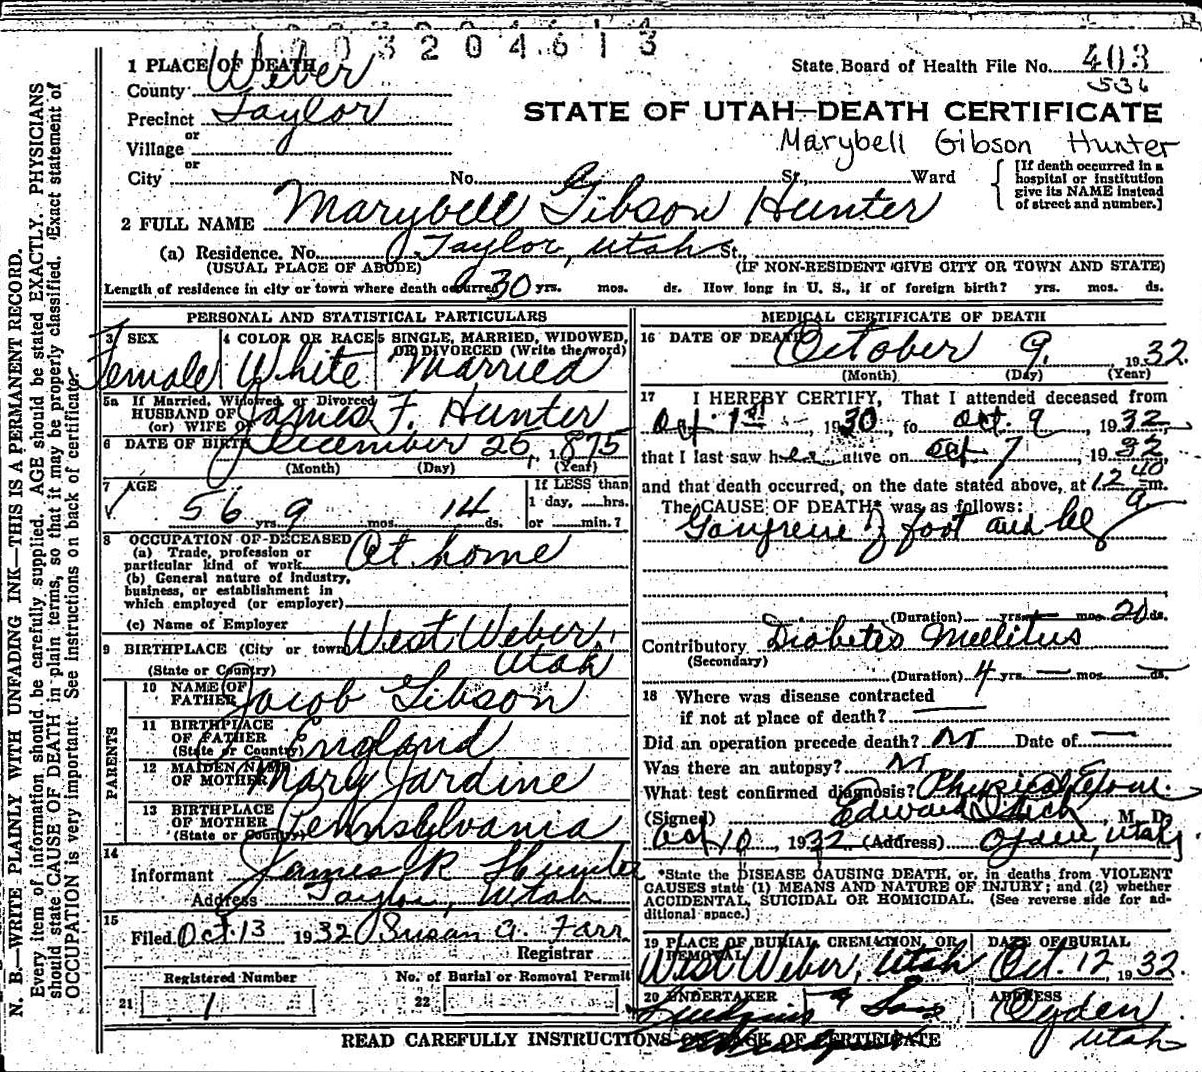 003204613
1 PLACE OF DEATH
State Board of Health File No. 403
536
County Weber
Precinct Taylor
or
Village
or
City No. St., Ward
STATE OF UTAH—DEATH CERTIFICATE
Marybell Gibson Hunter
[If death occurred in a
hospital or institution
give its NAME instead
of street and number.]
2 FULL NAME Marybell Gibson Hunter
(a) Residence. No. Taylor, Utah St.,
(USUAL PLACE OF ABODE) (IF NON-RESIDENT GIVE CITY OR TOWN AND STATE)
Length of residence in city or town where death occurred 30 yrs. mos. ds. How long in U. S., if of foreign birth? yrs. mos. ds.
PERSONAL AND STATISTICAL PARTICULARS
3 SEX Female
4 COLOR OR RACE White
5 SINGLE, MARRIED, WIDOWED,
OR DIVORCED (Write the word)
Married
5a If Married, Widowed, or Divorced
HUSBAND OF
(or) WIFE OF James F. Hunter
6 DATE OF BIRTH December 25, 1875
(Month) (Day) (Year)
7 AGE
56 yrs. 9 mos. 14 ds.
If LESS than
1 day, hrs.
or min.?
8 OCCUPATION OF DECEASED
(a) Trade, profession or
particular kind of work At home
(b) General nature of industry,
business, or establishment in
which employed (or employer)
(c) Name of Employer
9 BIRTHPLACE (City or town) West Weber,
(State or Country) Utah
PARENTS
10 NAME OF
FATHER Jacob Gibson
11 BIRTHPLACE
OF FATHER
(State or Country) England
12 MAIDEN NAME
OF MOTHER Mary Jardine
13 BIRTHPLACE
OF MOTHER
(State or Country) Pennsylvania
14
Informant James R Hunter
Address Taylor, Utah
15
Filed Oct 13 1932 Susan A. Farr
Registrar
Registered Number
21 1
No. of Burial or Removal Permit
22
MEDICAL CERTIFICATE OF DEATH
16 DATE OF DEATH October 9. 1932.
(Month) (Day) (Year)
17 I HEREBY CERTIFY, That I attended deceased from
Oct. 1st, 1930, to Oct. 9, 1932,
that I last saw her alive on Oct 7, 1932
and that death occurred, on the date stated above, at 12 40 a m.
The CAUSE OF DEATH* was as follows:
Gangrene of foot and leg
(Duration) yrs. — mos. 20 ds.
Contributory Diabetes Mellitus
(Secondary)
(Duration) 4 yrs. — mos. — ds.
18 Where was disease contracted
if not at place of death?
Did an operation precede death? no Date of —
Was there an autopsy? no
What test confirmed diagnosis? Physical Exam.
(Signed) Edward, M. D.
Oct 10, 1932 (Address) Ogden, Utah
*State the DISEASE CAUSING DEATH, or, in deaths from VIOLENT
CAUSES state (1) MEANS AND NATURE OF INJURY; and (2) whether
ACCIDENTAL, SUICIDAL OR HOMICIDAL. (See reverse side for ad-
ditional space.)
19 PLACE OF BURIAL CREMATION, OR
REMOVAL
West Weber, Utah
DATE OF BURIAL
Oct. 12, 1932.
20 UNDERTAKER
& Son
ADDRESS
Ogden
Utah
READ CAREFULLY INSTRUCTIONS ON BACK OF CERTIFICATE
N. B.—WRITE PLAINLY WITH UNFADING INK—THIS IS A PERMANENT RECORD.
Every item of information should be carefully supplied. AGE should be stated EXACTLY. PHYSICIANS
should state CAUSE OF DEATH in plain terms, so that it may be properly classified. Exact statement of
OCCUPATION is very important. See instructions on back of certificate.